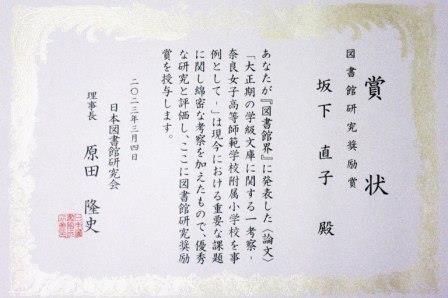 賞状
図書館研究奨励賞
坂下 直子 殿
あなたが『図書館界』に発表した〈論文〉
「大正期の学級文庫に関する一考察－
奈良女子高等師範学校附属小学校を事
例として－」は現今における重要な課題
に関し綿密な考察を加えたもので、優秀
な研究と評価し、ここに図書館研究奨励
賞を授与します。
二〇二三年三月四日
日本図書館研究会
理事長 原田 隆史